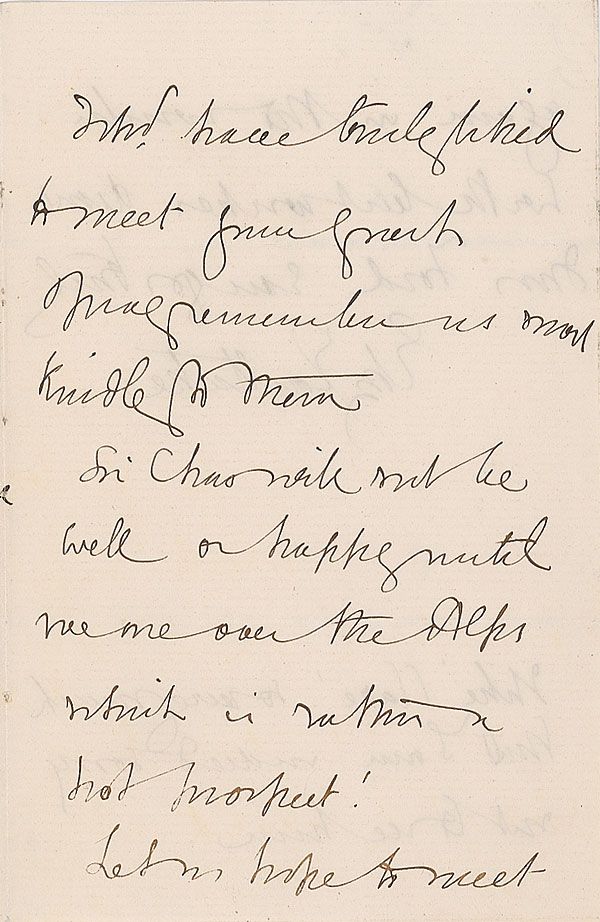 should have truly liked
to meet your guests
Pray remember us most
kindly to them
Sir Chas will not be
well or happy until
we are over the Alps
which is rather a
hot prospect!
Let us hope to meet